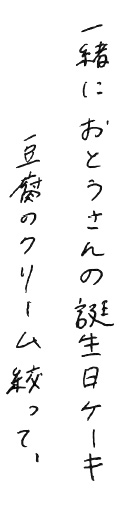 一緒におとうさんの誕生日ケーキ
豆腐のクリーム絞って、